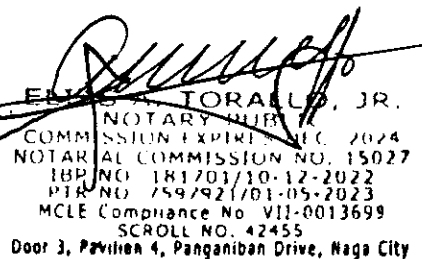 A. TORALLO, JR.
NOTARY PUBLIC
COMMISSION EXPIRES DEC. 2024
NOTARIAL COMMISSION NO. 15027
IBP NO 181701/10-12-2022
PTR NO 7597921/01-05-2023
MCLE Compliance No VII-0013699
SCROLL NO. 42455
Door 3, Pavilion 4, Panganiban Drive, Naga City